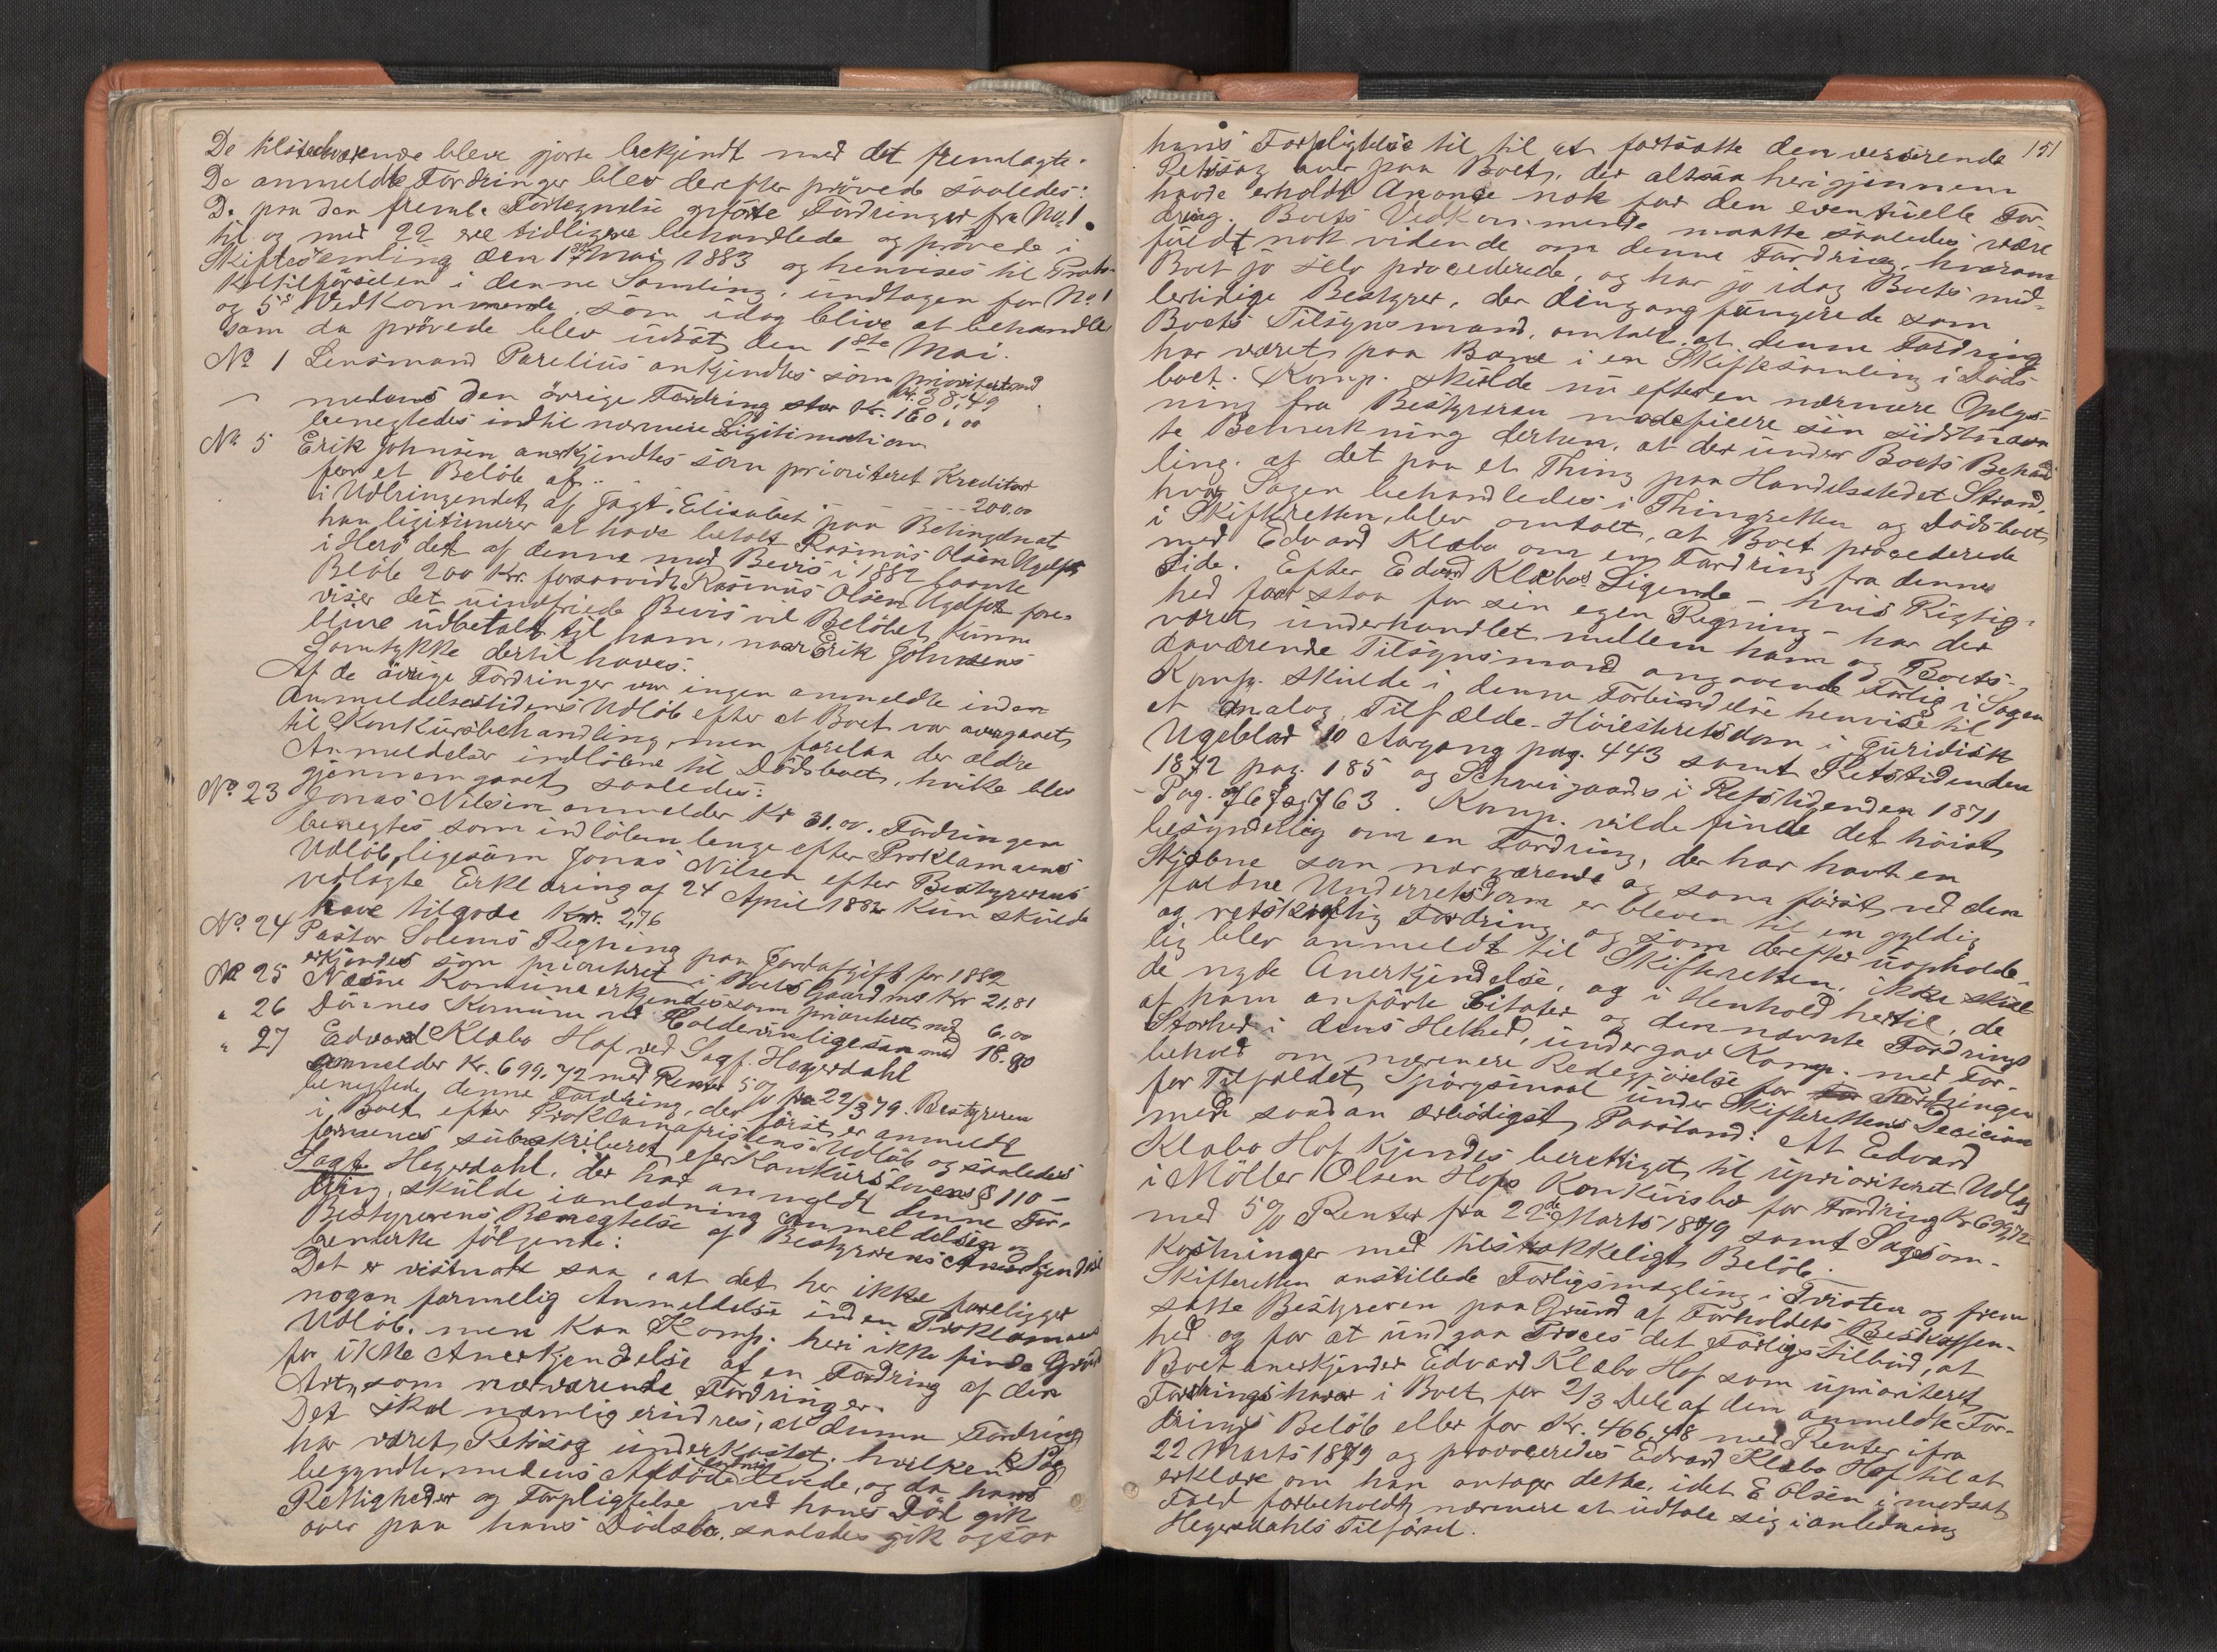 De tilstedeværende bleve gjorte bekjendt med det fremlagte.
De anmeldte Fordringer blev derefter prövede saaledes:
De paa den freml. Fortegnelse opförte Fordringer fra No. 1
til og med 22 ere tidligere behandlede og prövede i
Skiftesamling den 1ste Mai 1883 og henvises til Proto-
koltilförselen i denne Samling, undtagen for No. 1
og 5s Vedkommende, som idag blive at behandle
som da prövede blev udsat den 1ste Mai.
No 1 Lensmand Parelius ankjendtes som prioritert med
Kr. 38,49
medens den övrige Fordring stor Kr. 160,00
benegtedes indtil nærmere Ligitimation
No 5 Erik Johnsen anerkjendtes som prioriteret Kreditor
for et Belöb af .. --- 200,00
i Udbringendet af Jagt "Elisabet" paa Betingelse at
han ligitimerer at have betalt Rasmus Olsen
i Herö det af denne med Bevis i 1882 laante
Belöb 200 Kr. forsaavidt Rasmus Olsen fore-
viser det uindfriede Bevis vil Belöbet kunne
blive udbetalt til ham, naar Erik Johnsens
Samtykke dertil haves.
Af de övrige Fordringer var ingen anmeldte inden
Anmeldelsestidens Udlöb efter at Boet var overgaaet
til Konkursbehandling, men forelaa der ældre
Anmeldelser indlöbne til Dödsboet, hvilke blev
gjennemgaaet saaledes:
No. 23 Jonas Nilsen anmelder Kr 31.00. Fordringen
benegtes som indlöben lenge efter Proklamaens
Udlöb, ligesom Jonas Nilsen efter Bestyrerens
vedlagte Erklæring af 24 April 1882 kun skulde
have tilgode Kr. 2,76
No. 24 Pastor Solems Regning paa Jordafgift for 1882
erkjendes som prioriteret i Boets Gaard med Kr 21.81
No 25 Næsne Komune erkjendes som prioriteret med 6.00
" 26 Dönnes Komune ved ligesaa med 18.90
" 27 Edvard Klæbo Hof ved Sagf. Hegerdahl
anmelder Kr. 699,72 med Renter 5% fra 22/3 79. Bestyreren
benegtede denne Fordring, der först er anmeldt
i Boet efter Proklamafristens Udlöb og saaledes
formenes efter Konkurslovens § 110 –
Sagf. Hegerdahl, der har anmeldt denne For-
dring, skulde i anledning Anmeldelsen og
Bestyrerens Benegtelse af Bestyrerens Anerkjendelse
bemerke fölgende:
Det er vistnok saa, at det her ikke foreligger
nogen formelig Anmeldelse inden Proklamaens
Udlöb, men kan Komp. heri ikke finde Grund
for ikke Anerkjendelse af en Fordring af den
Art, som nærværende Fordringer.
Det skal nemlig erindres, at denne Fordring
har været Retssag underkastet, hvilken Sag
begyndte, medens Afdöde endnu levede, og da hans
Rettigheder og Forpligtelse ved hans Död gik
over paa hans Dödsbo, saaledes gik ogsaa
151
hans Forpligtelse til til at fortsætte den verserende
Retssag over paa Boet, der altsaa herigjennem
havde erholdt Anonce nok for den eventuelle For-
dring. Boets Vedkommende maatte saaledes være
fuldt nok vidende om denne Fordring, hvorom
Boet jo selv procederede, og har jo idag Boets mid-
lertidige Bestyrer, der dengang fungerede som
Boets Tilsynsmand, omtalt, at denne Fordring
har været paa Bane i en Skiftesamling i Döds-
boet. Komp. skulde nu efter en nærmere Oplys-
ning fra Bestyreren modificere sin sidstnævn
te Bemerkning derhen, at der under Boets Behand
ling, at det paa et Thing paa Handelsstedet Strand,
hvor Sagen behandledes i Thingretten og Dödsboet
i Skifteretten, blev omtalt, at Boet procederede
med Edvard Klæbo om en Fordring fra dennes
Side. Efter Edvard Klæbos Sigende – hvis Rigtig-
hed faar staa for sin egen Regning – har der
været underhandlet mellem ham og Boets
daværende Tilsynsmand angaaende Forlig i Sagen
Komp. skulde i denne Forbindelse henvise til
et analog Tilfælde – Höiesteretsdom i Juridisk
Ugeblad 10 Aargang pag. 443 samt Retstidenden
1872 pag. 185 og Schweigaards i Retstidenden 1871
Pag. 767 og 763. Komp. vilde finde det höist
besynderlig om en Fordring, der har havt en
Skjæbne som nærværende og som först ved den
faldne Underretsdom er bleven til en gyldig
og retskraftig Fordring og som derefter uopholde
lig blev anmeldt til Skifteretten, ikke skul
de nyde Anerkjendelse, og i Henhold hertil, de
af ham anförte Citater og den nævnte Fordrings
Storhed i dens Helhed, undergav Komp. med For-
behold om nærmere Redegjörelse for Fordringen
for Tilfældet, Spörgsmaal under Skifterettens Decision
med saadan ærbödigst Paastand: At Edvard
Klæbo Hof kjendes berettiget til uprioriteret Udlæg
i Möller Olsen Hofs Konkursbo for Fordring Kr 699,72
med 5% Renter fra 22de Marts 1879 samt Sagsom-
kostninger med tilstrækkeligt Belöb.
Skifteretten anstillede Forligsmægling i Tvisten og frem
satte Bestyreren paa Grund af Forholdets Beskaffen-
hed og for at undgaa Proces det Forligs-Tilbud, at
Boet anerkjender Edvard Klæbo Hof som uprioriteret
Fordringshaver i Boet for 2/3 Dele af den anmeldte For-
drings Belöb eller for Kr. 466,48 med Renter ifra
22 Marts 1879 og provoceredes Edvard Klæbo Hof til at
erklære om han antager dette, idet E Olsen i modsat
Fald forbeholdt nærmere at udtale sig i anledning
Hegerdahls Tilförsel.